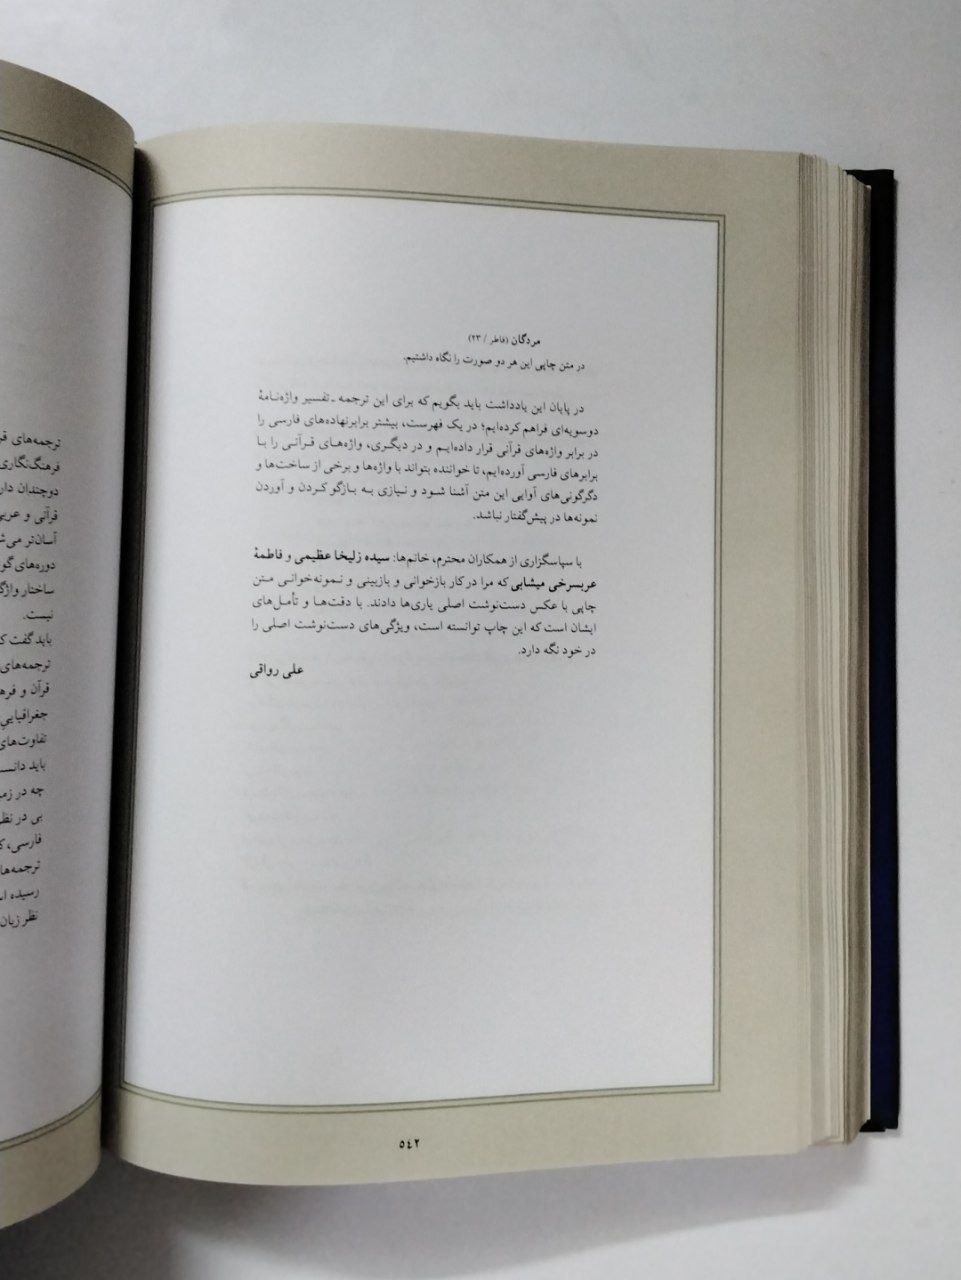 مردگان (فاطر / ۲۳)
در متن چاپی این هر دو صورت را نگاه داشتیم.
در پایان این یادداشت باید بگویم که برای این ترجمه ـ تفسیر واژه‌نامهٔ
دوسویه‌ای فراهم کرده‌ایم؛ در یک فهرست، بیشتر برابرنهاده‌های فارسی را
در برابر واژه‌های قرآنی قرار داده‌ایم و در دیگری، واژه‌های قرآنی را با
برابرهای فارسی آورده‌ایم، تا خواننده بتواند با واژه‌ها و برخی از ساخت‌ها و
دگرگونی‌های آوایی این متن آشنا شود و نیازی به بازگو کردن و آوردن
نمونه‌ها در پیش‌گفتار نباشد.
با سپاسگزاری از همکاران محترم، خانم‌ها: سیده زلیخا عظیمی و فاطمهٔ
عربسرخی میشابی که مرا در کار بازخوانی و بازبینی و نمونه‌خوانی متن
چاپی با عکس دست‌نوشت اصلی یاری‌ها دادند. با دقت‌ها و تأمل‌های
ایشان است که این چاپ توانسته است، ویژگی‌های دست‌نوشت اصلی را
در خود نگه دارد.
علی رواقی
۵۴۲
ترجمه‌های قر
فرهنگ‌نگاری
دوچندان دار
قرآنی و عربی
آسان‌تر می‌ش
دوره‌های گو
ساختار واژگ
نیست.
باید گفت ک
ترجمه‌های
قرآن و فره
جغرافیایی
تفاوت‌های
باید دانس
چه در زم
بی در نظر
فارسی، ک
ترجمه‌ها
رسیده ا
نظر زبان